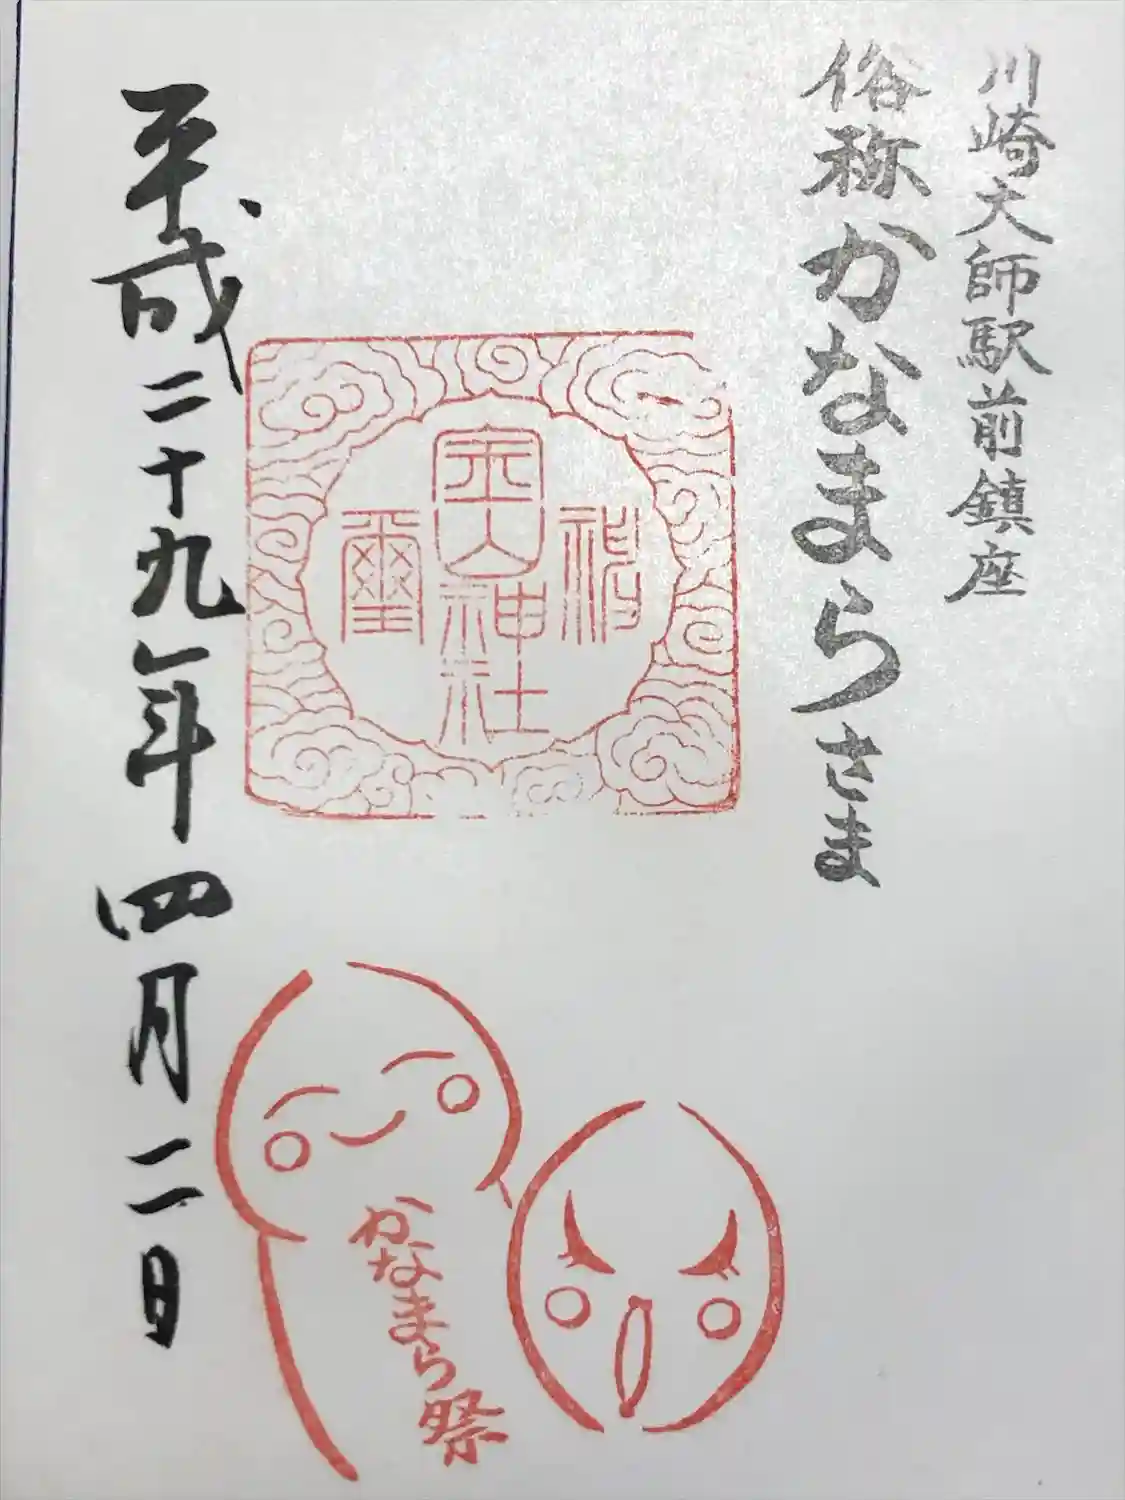 川崎大師駅前鎮座
俗称かなまらさま
金山神社
璽
平成二十九年四月二日
かなまら祭